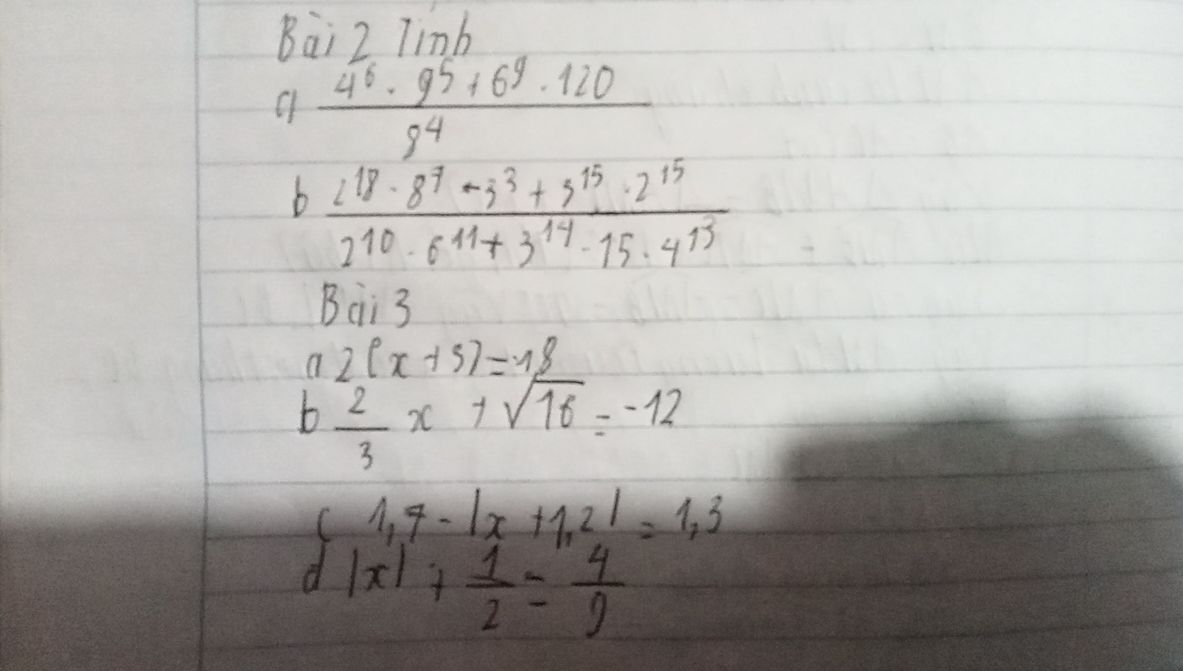 Bài 2 Tính
a (4^6 . 9^5 + 6^9 . 120) / 8^4
b (2^18 . 8^7 - 3^3 + 3^15 . 2^15) / (2^10 . 6^11 + 3^14 . 15 . 4^13)
Bài 3
a 2(x + 5) = 18
b 2/3 x + √16 = -12
c 1,7 - |x + 1,2| = 1,3
d |x| + 1/2 = 4/9